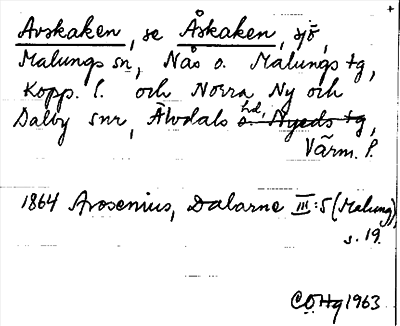 Avskaken, se Åskaken, sjö,
Malungs sn, Nås o. Malungs tg,
Kopp. l. och Norra Ny och
Dalby snr, Älvdals hd, o. Nyeds tg,
Värm. l.
1864 Arosenius, Dalarne III:5 (Malung),
s. 19.
COHg 1963